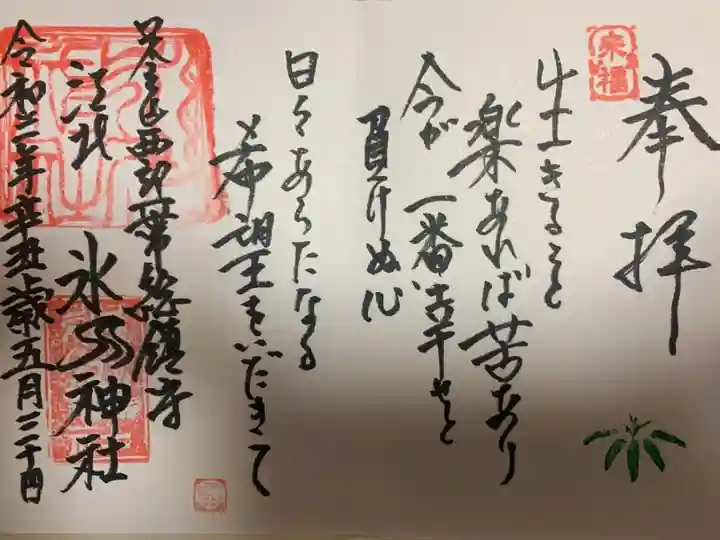 奉拝
来福
生きること
楽あれば苦あり
今が一番幸せと
負けぬ心
日々あらたなる
希望をいだきて
足立区西部一帯総鎮守
江北
氷川神社
令和三年辛丑歳五月二十四日